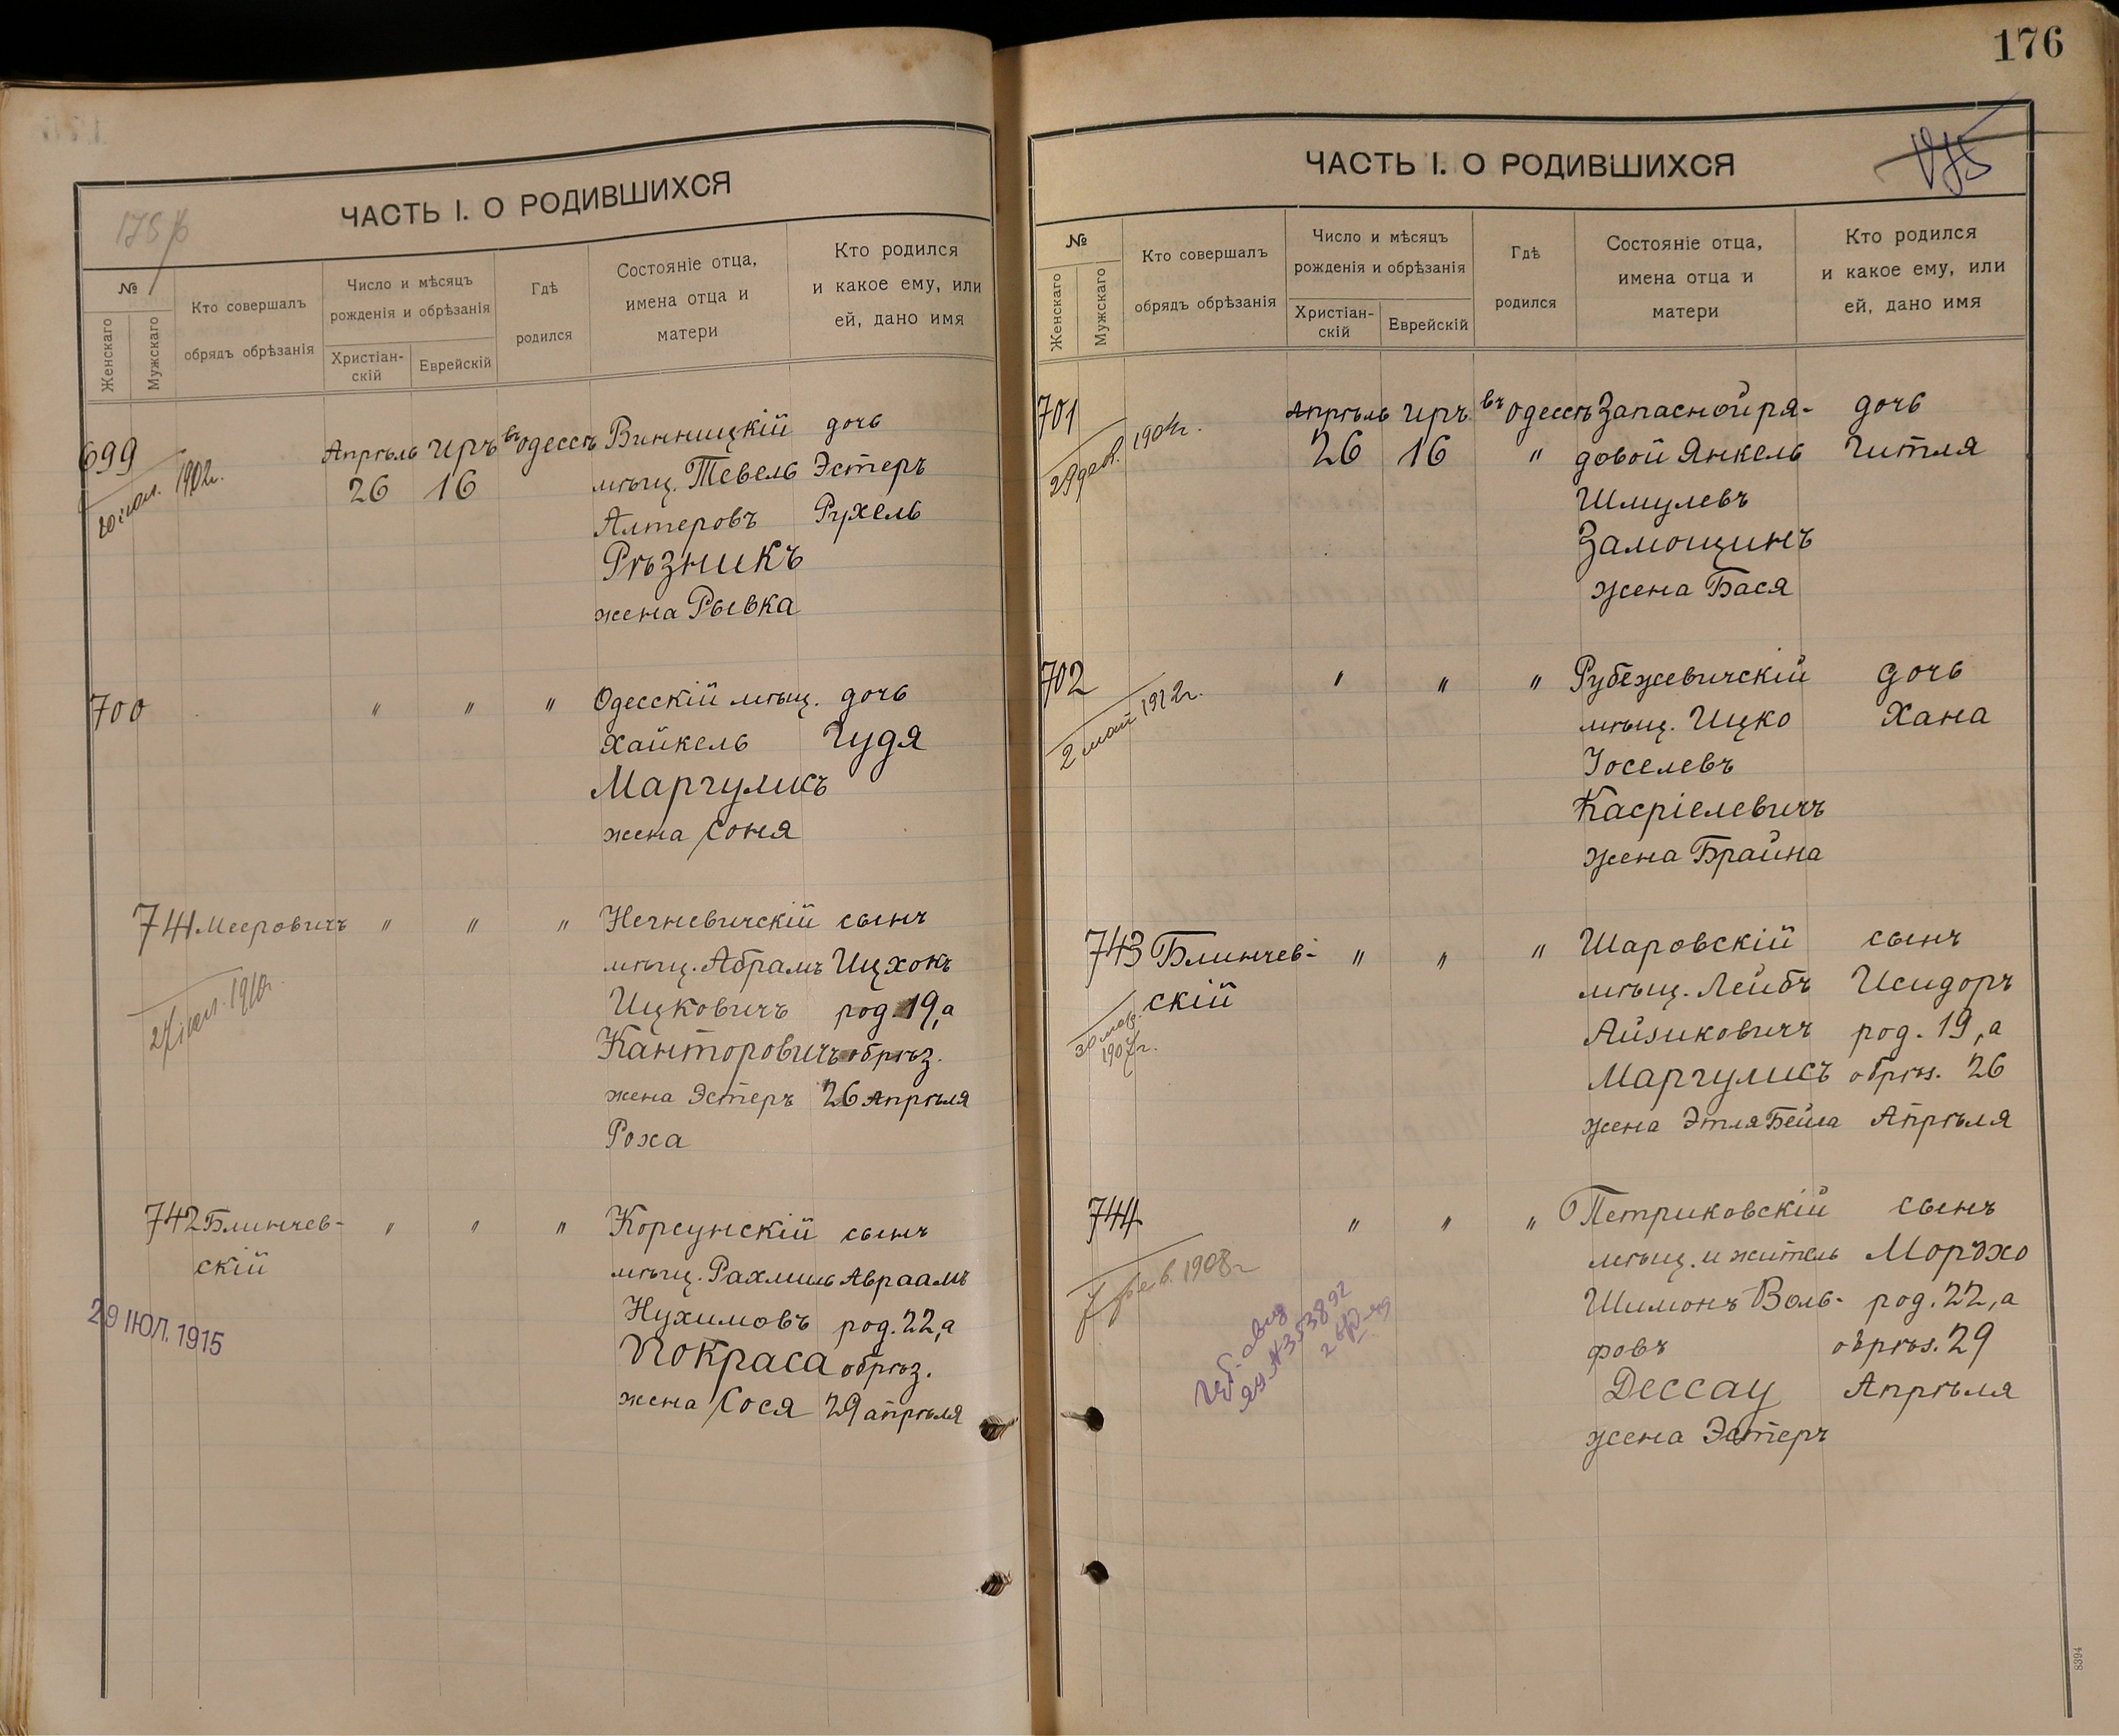 ЧАСТЬ I. О РОДИВШИХСЯ
№
Женскаго
Мужскаго
Кто совершалъ
обрядъ обрѣзанія
Число и мѣсяцъ
рожденія и обрѣзанія
Христіан-
скій
Еврейскій
Гдѣ
родился
Состояніе отца,
имена отца и
матери
Кто родился
и какое ему, или
ей, дано имя
699 Апрѣль Иръ въ Одессѣ Винницкій дочь
1902г. 26 16 мѣщ. Тевель Эстеръ
Алтеровъ Рухель
Рѣзникъ
жена Рывка
700 " " " Одесскій мѣщ. дочь
Хайкель Гудя
Маргулисъ
жена Соня
741 Мееровичъ " " " Негневичскій сынъ
мѣщ. Абрамъ Ицхокъ
Ицковичъ род. 19, а
1910г.
Канторовичъ обрѣз.
жена Эстеръ 26 Апрѣля
Роха
742 Блинчев- " " " Корсунскій сынъ
скій мѣщ. Рахмиль Авраамъ
29 ІЮЛ. 1915
Нухимовъ род. 22, а
Покраса обрѣз.
жена Сося 29 апрѣля
176
ЧАСТЬ I. О РОДИВШИХСЯ
175
№
Женскаго
Мужскаго
Кто совершалъ
обрядъ обрѣзанія
Число и мѣсяцъ
рожденія и обрѣзанія
Христіан-
скій
Еврейскій
Гдѣ
родился
Состояніе отца,
имена отца и
матери
Кто родился
и какое ему, или
ей, дано имя
701 Апрѣль Иръ въ Одессѣ Запасной ря- дочь
26 16 " довой Янкель Гитля
29 дек. 1904г.
Шмулевъ
Замощинъ
жена Бася
702 " " " Рубежевичскій дочь
2 май 1912г. мѣщ. Ицко Хана
Іоселевъ
Касріелевичъ
жена Брайна
743 Блинчев- " " " Шаровскій сынъ
скій мѣщ. Лейбъ Исидоръ
1907г.
Айзиковичъ род. 19, а
Маргулисъ обрѣз. 26
жена Этля Бейла Апрѣля
744 " " " Петриковскій сынъ
7 фев. 1908г мѣщ. и житель Мордхо
Шимонъ Воль- род. 22, а
фовъ обрѣз. 29
Дессау Апрѣля
жена Эстеръ
8394